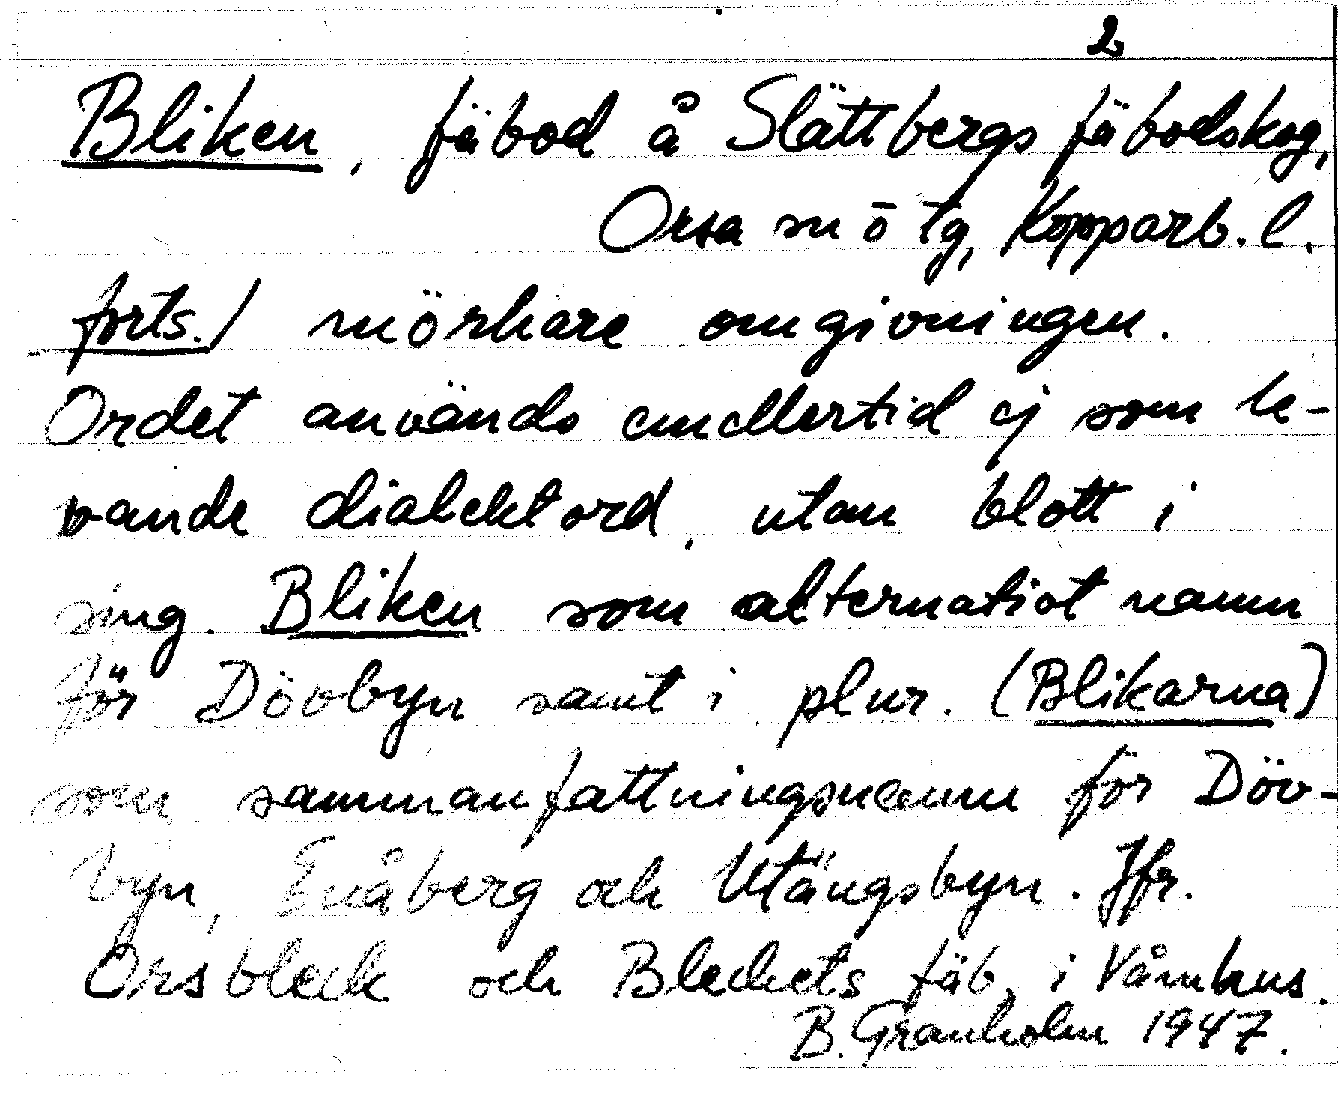 2
Bliken, fäbod å Slättbergs fäbodskog,
Orsa sn ō tg, Kopparb. l.
forts./ mörkare omgivningen.
Ordet används emellertid ej som le-
vande dialektord, utan blott i
sing. Bliken som alternativt namn
för Dövbyn samt i plur. (Blikarna)
som sammanfattningsnamn för Döv-
byn, Enåberg och Utängsbyn. Jfr.
Orsbleck och Bleckets fäb. i Våmhus.
B. Granholm 1947.